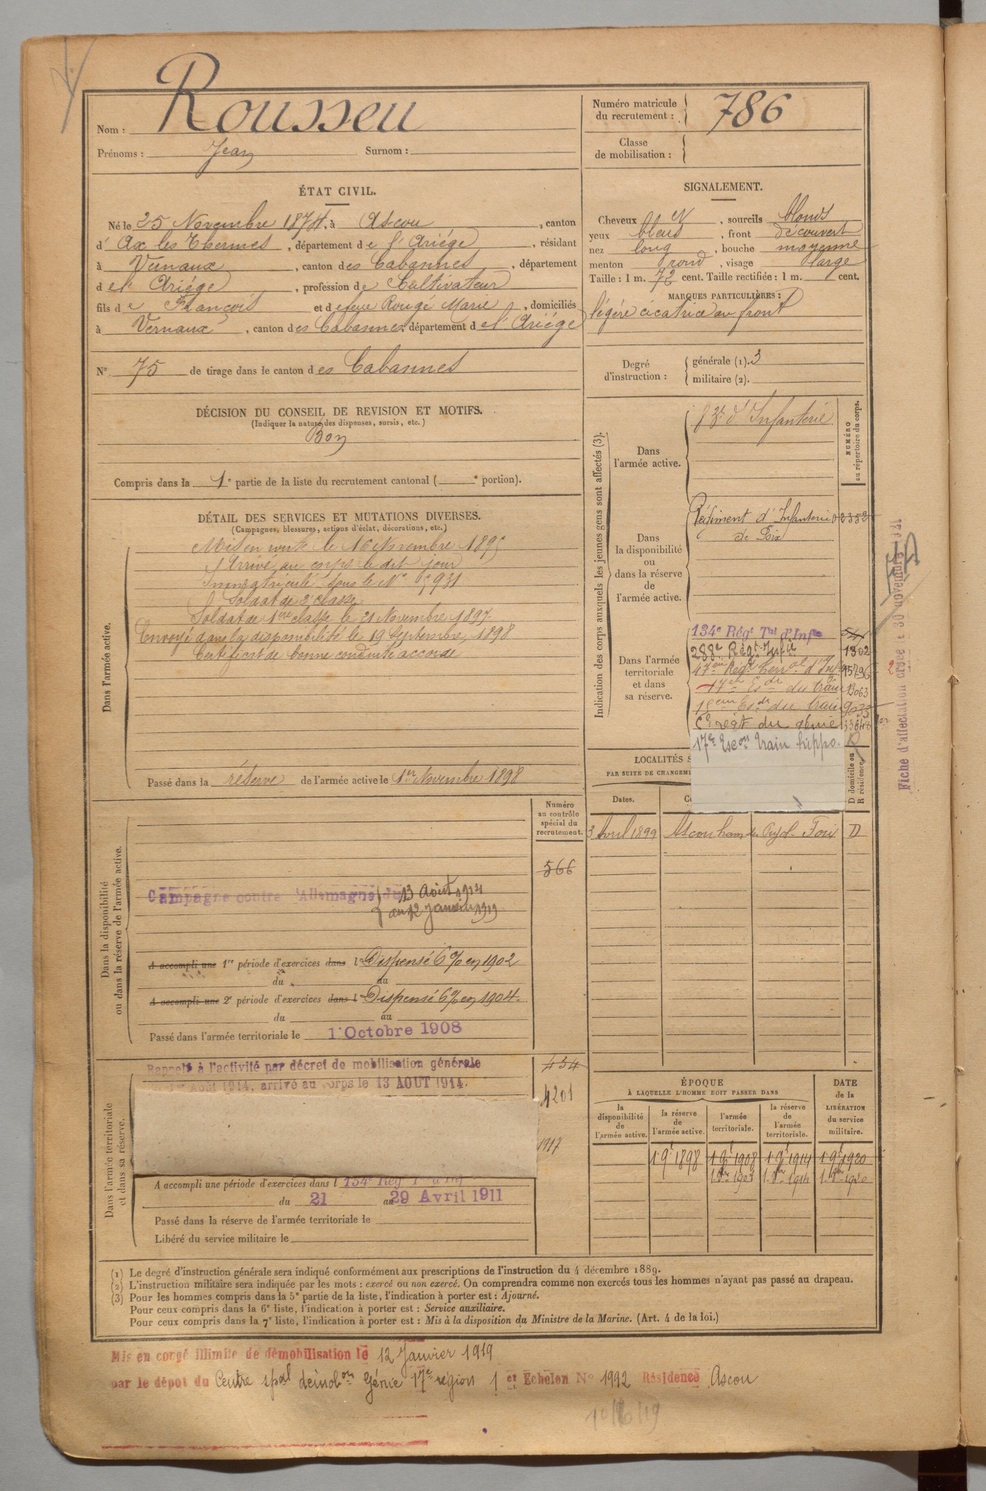 Nom : Rousseu
Prénoms : Jean Surnom :
Numéro matricule du recrutement : 786
Classe de mobilisation :
ÉTAT CIVIL.
Né le 25 Novembre 1874, à Ascou, canton
d' Ax les Thermes, département de l'Ariége, résidant
à Vernaux, canton des Cabannes, département
de l'Ariége, profession de Cultivateur
fils de François et de feue Rougé Marie, domiciliés
à Vernaux, canton des Cabannes département de l'Ariége
N° 75 de tirage dans le canton des Cabannes
SIGNALEMENT.
Cheveux N, sourcils blonds
yeux bleus, front découvert
nez long, bouche moyenne
menton rond, visage large
Taille : 1 m. 72 cent. Taille rectifiée : 1 m. cent.
MARQUES PARTICULIÈRES :
légére cicatrice au front
Degré d'instruction : générale (1). 3
militaire (2).
DÉCISION DU CONSEIL DE REVISION ET MOTIFS.
(Indiquer la nature des dispenses, sursis, etc.)
Bon
Compris dans la 1e partie de la liste du recrutement cantonal ( e portion).
DÉTAIL DES SERVICES ET MUTATIONS DIVERSES.
(Campagnes, blessures, actions d'éclat, décorations, etc.)
Dans l'armée active.
Mis en route le 16 Novembre 1895
Arrivé au corps le dit jour
Immatriculé sous le N°
Soldat de 2e classe
Soldat de 1ère classe le 21 Novembre 1897
Envoyé dans la disponibilité le 19 Septembre 1898
Certificat de bonne conduite accordé
Passé dans la réserve de l'armée active le 1er Novembre 1898
Indication des corps auxquels les jeunes gens sont affectés (3).
NUMÉRO au répertoire du corps.
Dans l'armée active.
d'Infanterie
Dans la disponibilité ou dans la réserve de l'armée active.
Régiment d'Infanterie
de Foix
Dans l'armée territoriale et dans sa réserve.
134e Régt Tal d'Infie
288e Régt Infie 1802
17e Esc. du train 13063
du train
6e Regt du génie
17e Escon Train hippo.
LOCALITÉS S
PAR SUITE DE CHANGEM
Dates.
D domicile ou R résidence.
3 Avril 1899 Ascou D
Fiche d'affectation créée le 30 novembre 1921
Numéro au contrôle spécial du recrutement.
566
Dans la disponibilité ou dans la réserve de l'armée active.
Campagne contre l'Allemagne du 13 Août 1914
au 12 janvier 1919
A accompli une 1re période d'exercices dans l Dispensé 6% en 1902
du au
A accompli une 2e période d'exercices dans l Dispensé 6% en 1904
du au
Passé dans l'armée territoriale le 1er Octobre 1908
Dans l'armée territoriale et dans sa réserve.
Rappelé à l'activité par décret de mobilisation générale
Août 1914, arrivé au corps le 13 AOUT 1914.
434
4201
1917
A accompli une période d'exercices dans l 134e Régt
du 21 au 29 Avril 1911
Passé dans la réserve de l'armée territoriale le
Libéré du service militaire le
ÉPOQUE
À LAQUELLE L'HOMME DOIT PASSER DANS
DATE de la LIBÉRATION du service militaire.
la disponibilité de l'armée active.
la réserve de l'armée active.
l'armée territoriale.
la réserve de l'armée territoriale.
1 9e 1898 1 9e 1908 1 9e 1914 1 9e 1920
(1) Le degré d'instruction générale sera indiqué conformément aux prescriptions de l'instruction du 4 décembre 1889.
(2) L'instruction militaire sera indiquée par les mots : exercé ou non exercé. On comprendra comme non exercés tous les hommes n'ayant pas passé au drapeau.
(3) Pour les hommes compris dans la 5e partie de la liste, l'indication à porter est : Ajourné.
Pour ceux compris dans la 6e liste, l'indication à porter est : Service auxiliaire.
Pour ceux compris dans la 7e liste, l'indication à porter est : Mis à la disposition du Ministre de la Marine. (Art. 4 de la loi.)
Mis en congé illimité de démobilisation le 12 Janvier 1919
par le dépot du Centre spal démobon Génie 17e région 1 er Echelon N° 1992 Résidence Ascou